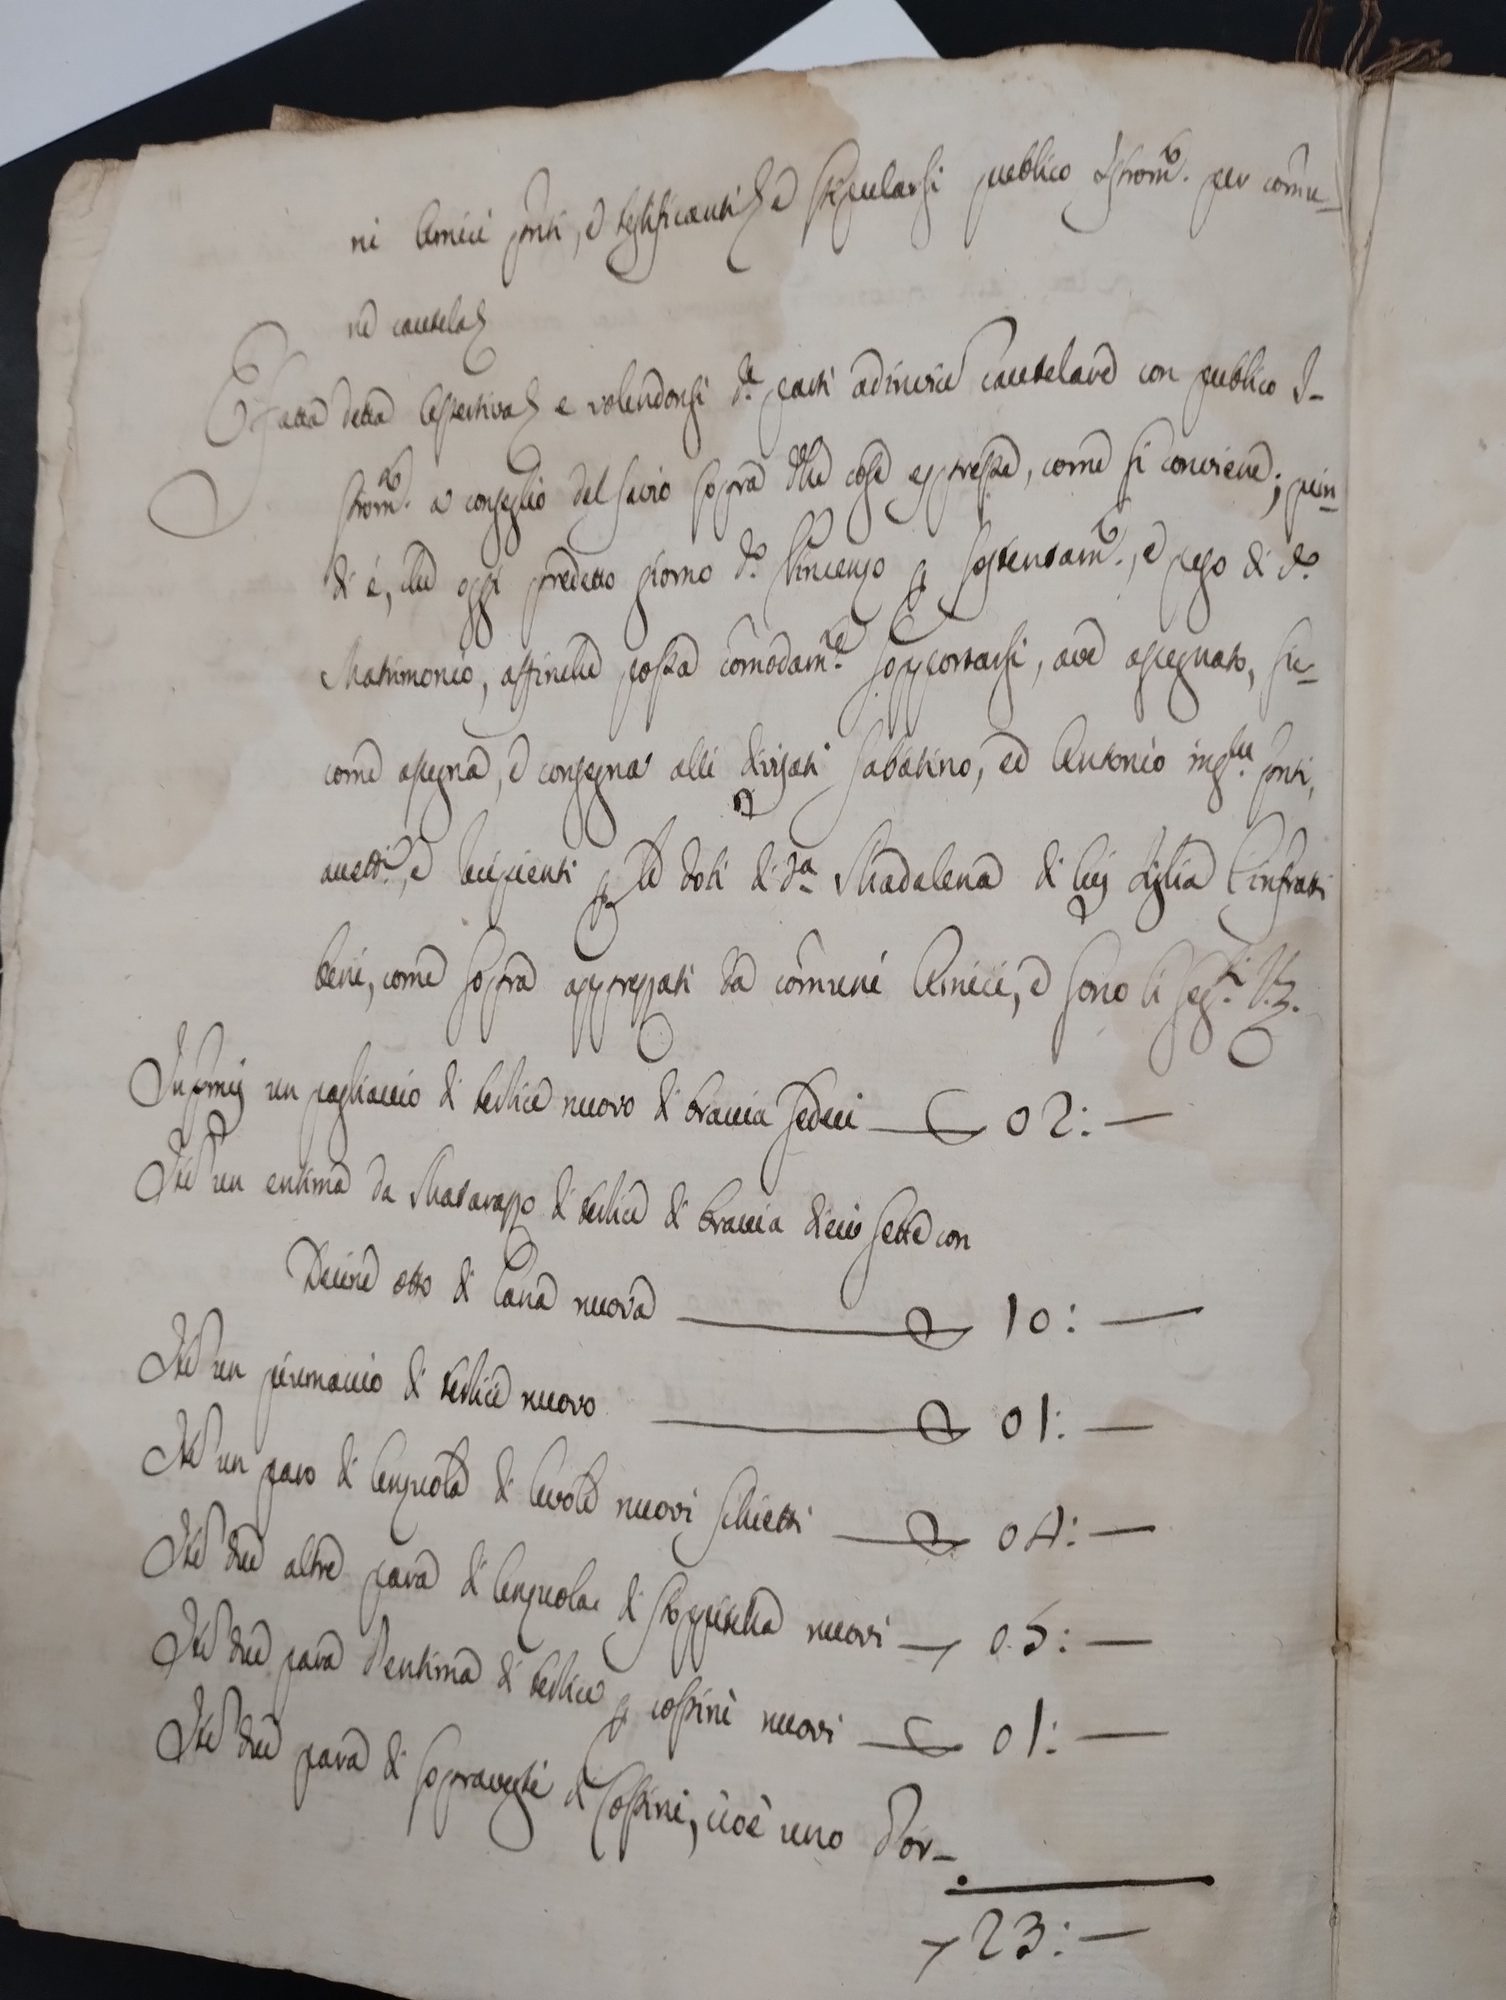 ni Amici pnti, e testificanti, e stipularsi publico Istrom.to per comu-
ne cautela
E fatta detta assertiva, e volendonsi d.e parti adinvicē cautelare con publico I-
strom.to a conseglio del savio sopra dette cose espresse, come si conviene; quin-
di è, che oggi predetto giorno d.o Vincenzo p sostentam.to, e peso di d.o
Matrimonio, affinche possa comodam.te sopportarsi, ave assegnato, si-
come assegna, e consegna alli divisati Sabatino, ed Antonio pnti,
accett.i, e recipienti p le doti di d.a Madalena di lui figlia l'infratti
beni, come sopra apprezzati da comuni Amici, e sono li seg.ti Vz.
In pmis un pagliaccio di terlice nuovo di braccia sedeci 02: —
Itē un entima da Matarazzo di terlice di braccia dieci sette con
Decine otto di lana nuova 10: —
Itē un piumaccio di terlice nuovo 01: —
Itē un paro di lenzola di tevole nuovi schietti 04: —
Itē due altre para di lenzola di stoppitella nuovi 05: —
Itē due para d'entima di terlice p cossini nuovi 01: —
Itē due para di sopraveste di Cossini, cioè uno d'or-
23: —